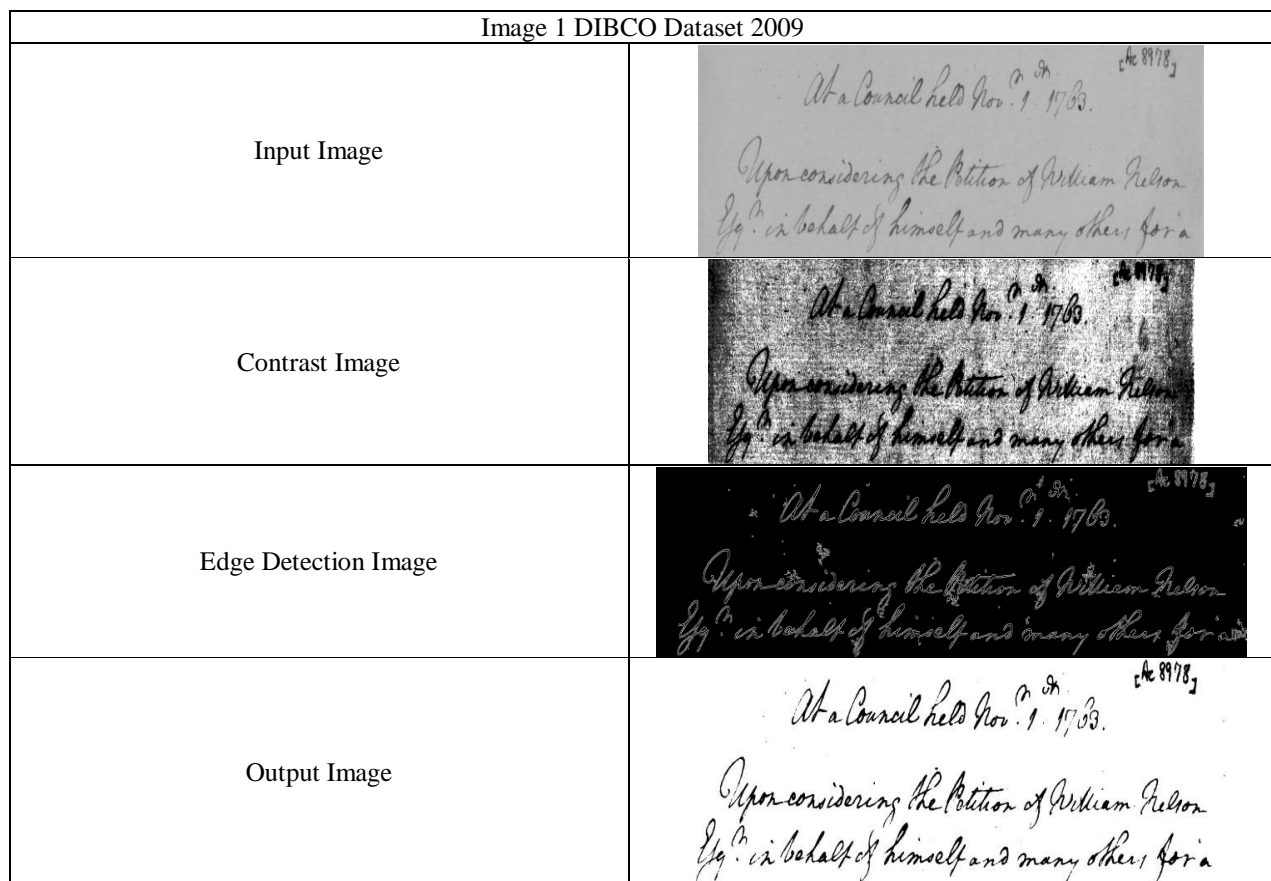 Image 1 DIBCO Dataset 2009
Input Image
[Ac 8978]
At a Council held Nov.r 1. 1763.
Upon considering the Petition of William Nelson
Esq.r in behalf of himself and many others for a
Contrast Image
[Ac 8978]
At a Council held Nov.r 1. 1763.
Upon considering the Petition of William Nelson
Esq.r in behalf of himself and many others for a
Edge Detection Image
[Ac 8978]
At a Council held Nov.r 1. 1763.
Upon considering the Petition of William Nelson
Esq.r in behalf of himself and many others for a
Output Image
[Ac 8978]
At a Council held Nov.r 1. 1763.
Upon considering the Petition of William Nelson
Esq.r in behalf of himself and many others for a